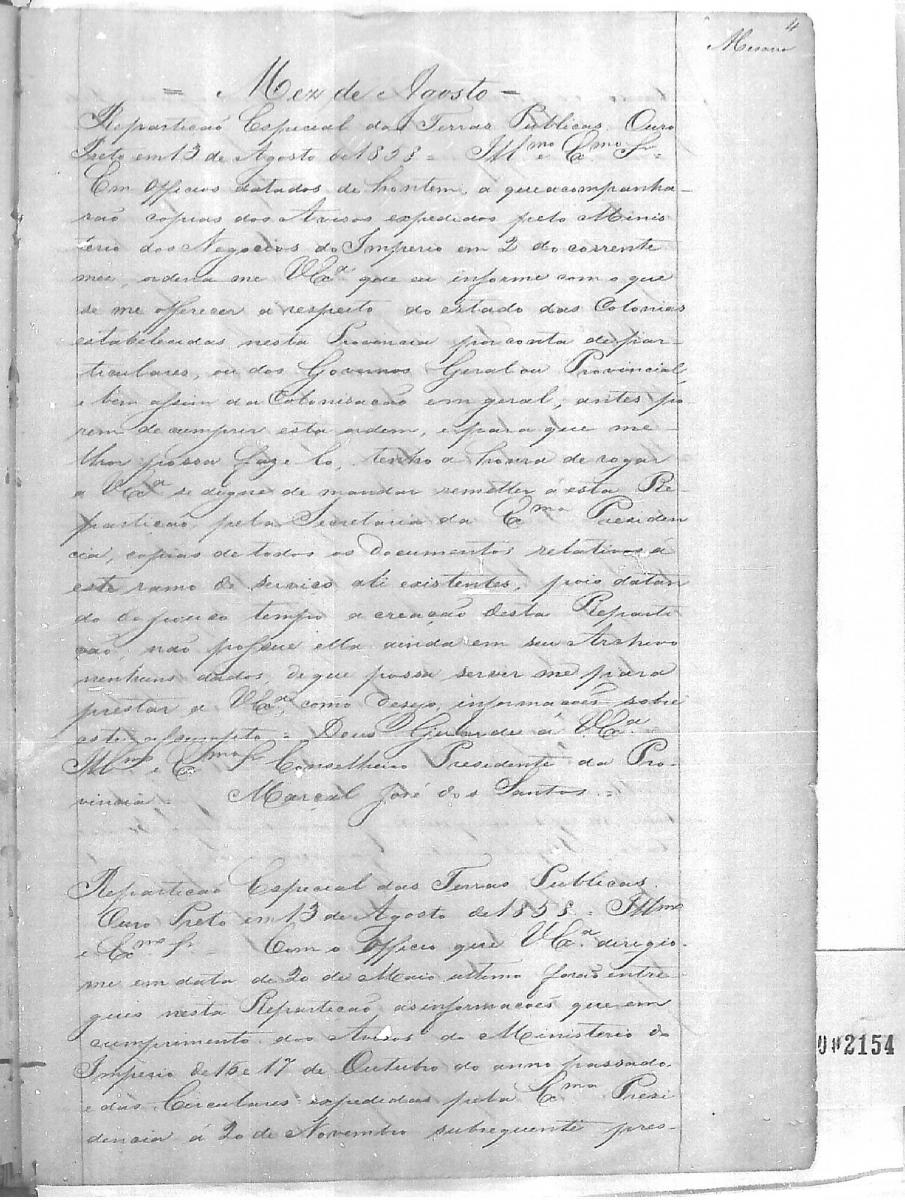 4
= Mez de Agosto =
Repartição Especial das Terras Publicas Ouro
Preto em 13 de Agosto de 1858 = Illmo e Exmo Sr =
Em officios datados de hontem, a que acompanha-
rão copias dos Avisos expedidos pelo Minis
terio dos Negocios do Imperio em 2 do corrente
mez, ordena me VExa que eu informe com o que
se me offerecer a respeito do estado das Colonias
estabelecidas nesta Provincia por conta de par-
ticulares, ou dos Governos Geral ou Provincial,
e bem assim da Colonisação em geral; antes po
rem de cumprir esta ordem, e para que me-
lhor possa faze lo, tenho a honra de rogar
a VExa se digne de mandar remetter á esta Re-
partição, pela Secretaria da Exma Presiden
cia, copias de todos os documentos relativos á
este ramo do serviço ali existentes, pois datan
do de pouco tempo a creação desta Reparti
ção, não possue ella ainda em seu Archivo
nenhuns dados, de que possa server me para
prestar a VExa, como desejo, informações sobre
este assumpto = Deus Guarde á VExa =
Illmo e Exmo Sr Conselheiro Presidente da Pro-
vincia = Marçal José dos Santos =
Repartição Especial das Terras Publicas.
Ouro Preto em 13 de Agosto de 1858 = Illmo
e Exmo Sr = Com o Officio que VExa deregio
me em data de 20 de Maio ultimo forão entre-
gues nesta Repartição as informações que em
cumprimento dos Avisos do Ministerio do
Imperio de 16 e 17 de Outubro do anno passado,
e das Circulares expedidas pela Exma Presi
dencia á 20 de Novembro subsequente pres-
002154